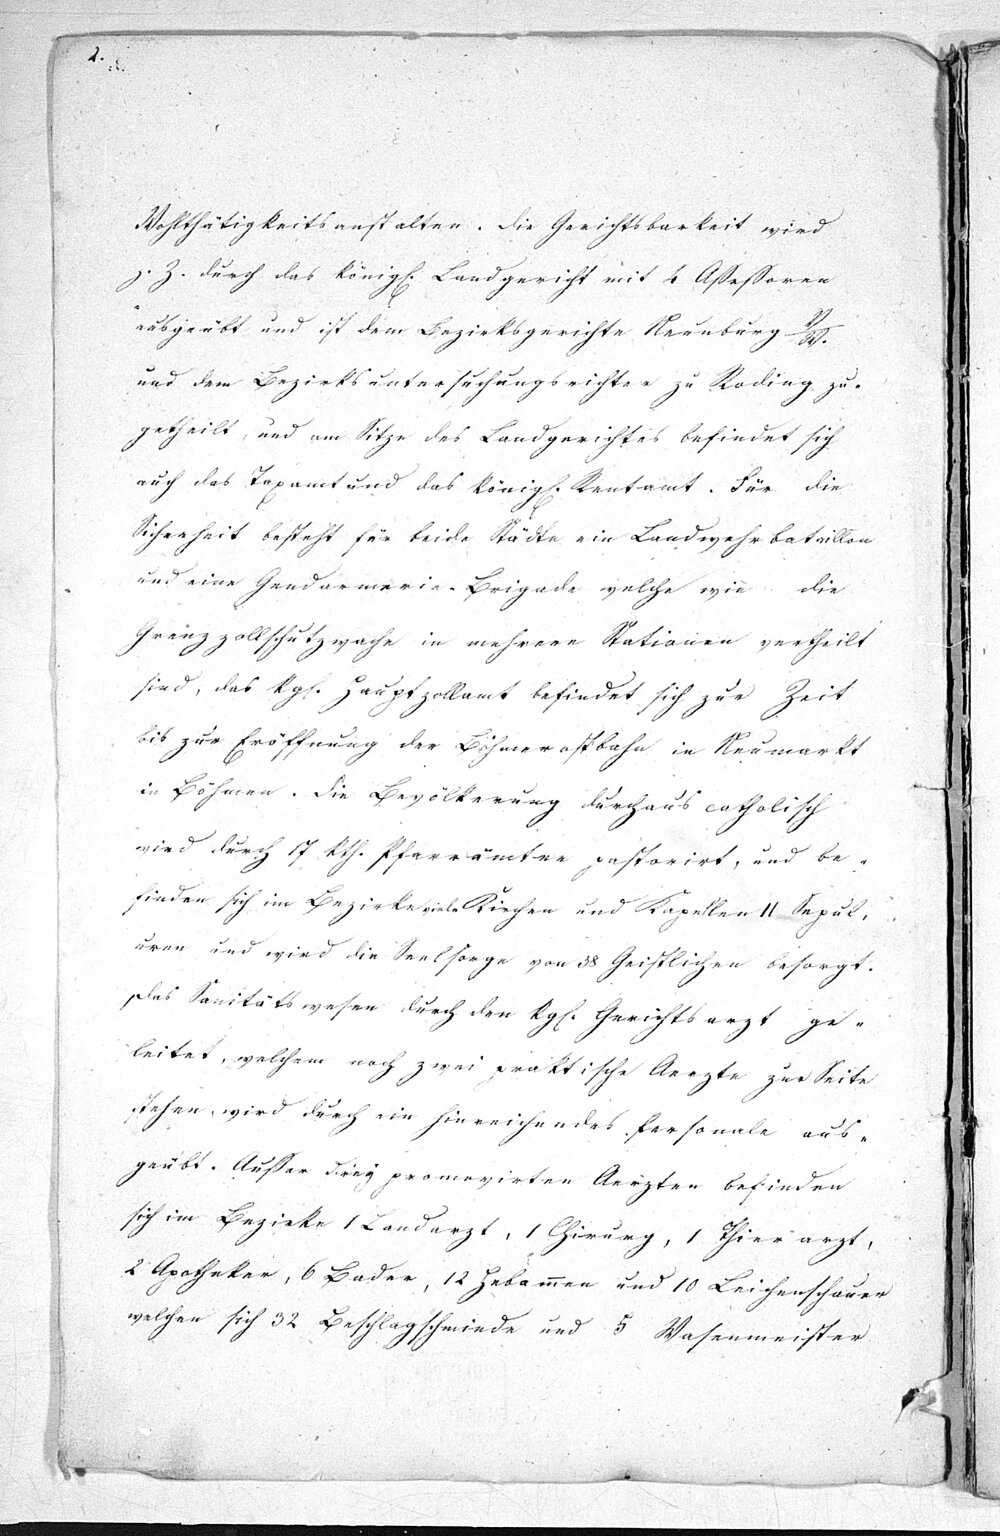 2.
Wohlthätigkeitsanstalten. Die Gerichtsbarkeit wird
z. Z. durch das königl. Landgericht mit 4 Assessoren
ausgeübt und ist dem Bezirksgerichte Neunburg v/W.
und dem Bezirksuntersuchungsrichter zu Roding zu-
getheilt, und am Sitze des Landgerichtes befindet sich
auch das Taxamt und das königl. Rentamt. Für die
Sicherheit besteht für beide Städte ein Landwehrbataillon
und eine Gendarmerie-Brigade welche wie die
Grenzzollschutzwache in mehrere Stationen vertheilt
sind, das kgl. Hauptzollamt befindet sich zur Zeit
bis zur Eröffnung der Böhmerostbahn in Neumarkt
in Böhmen. Die Bevölkerung durchaus catholisch
wird durch 17 kth. Pfarrämter pastorirt, und be-
finden sich im Bezirke viele Kirchen und Kapellen 11 Sepul-
uren und wird die Seelsorge von 38 Geistlichen besorgt.
Das Sanitätswesen durch den kgl. Gerichtsarzt ge-
leitet, welchem noch zwei praktische Aerzte zur Seite
stehen, wird durch ein hinreichendes Personale aus-
geübt. Ausser drey promovirten Aerzten befinden
sich im Bezirke 1 Landarzt, 1 Chirurg, 1 Thierarzt,
2 Apotheker, 6 Bader, 12 Hebam̄en und 10 Leichenschauer
welchen sich 32 Beschlagschmiede und 5 Wasenmeister